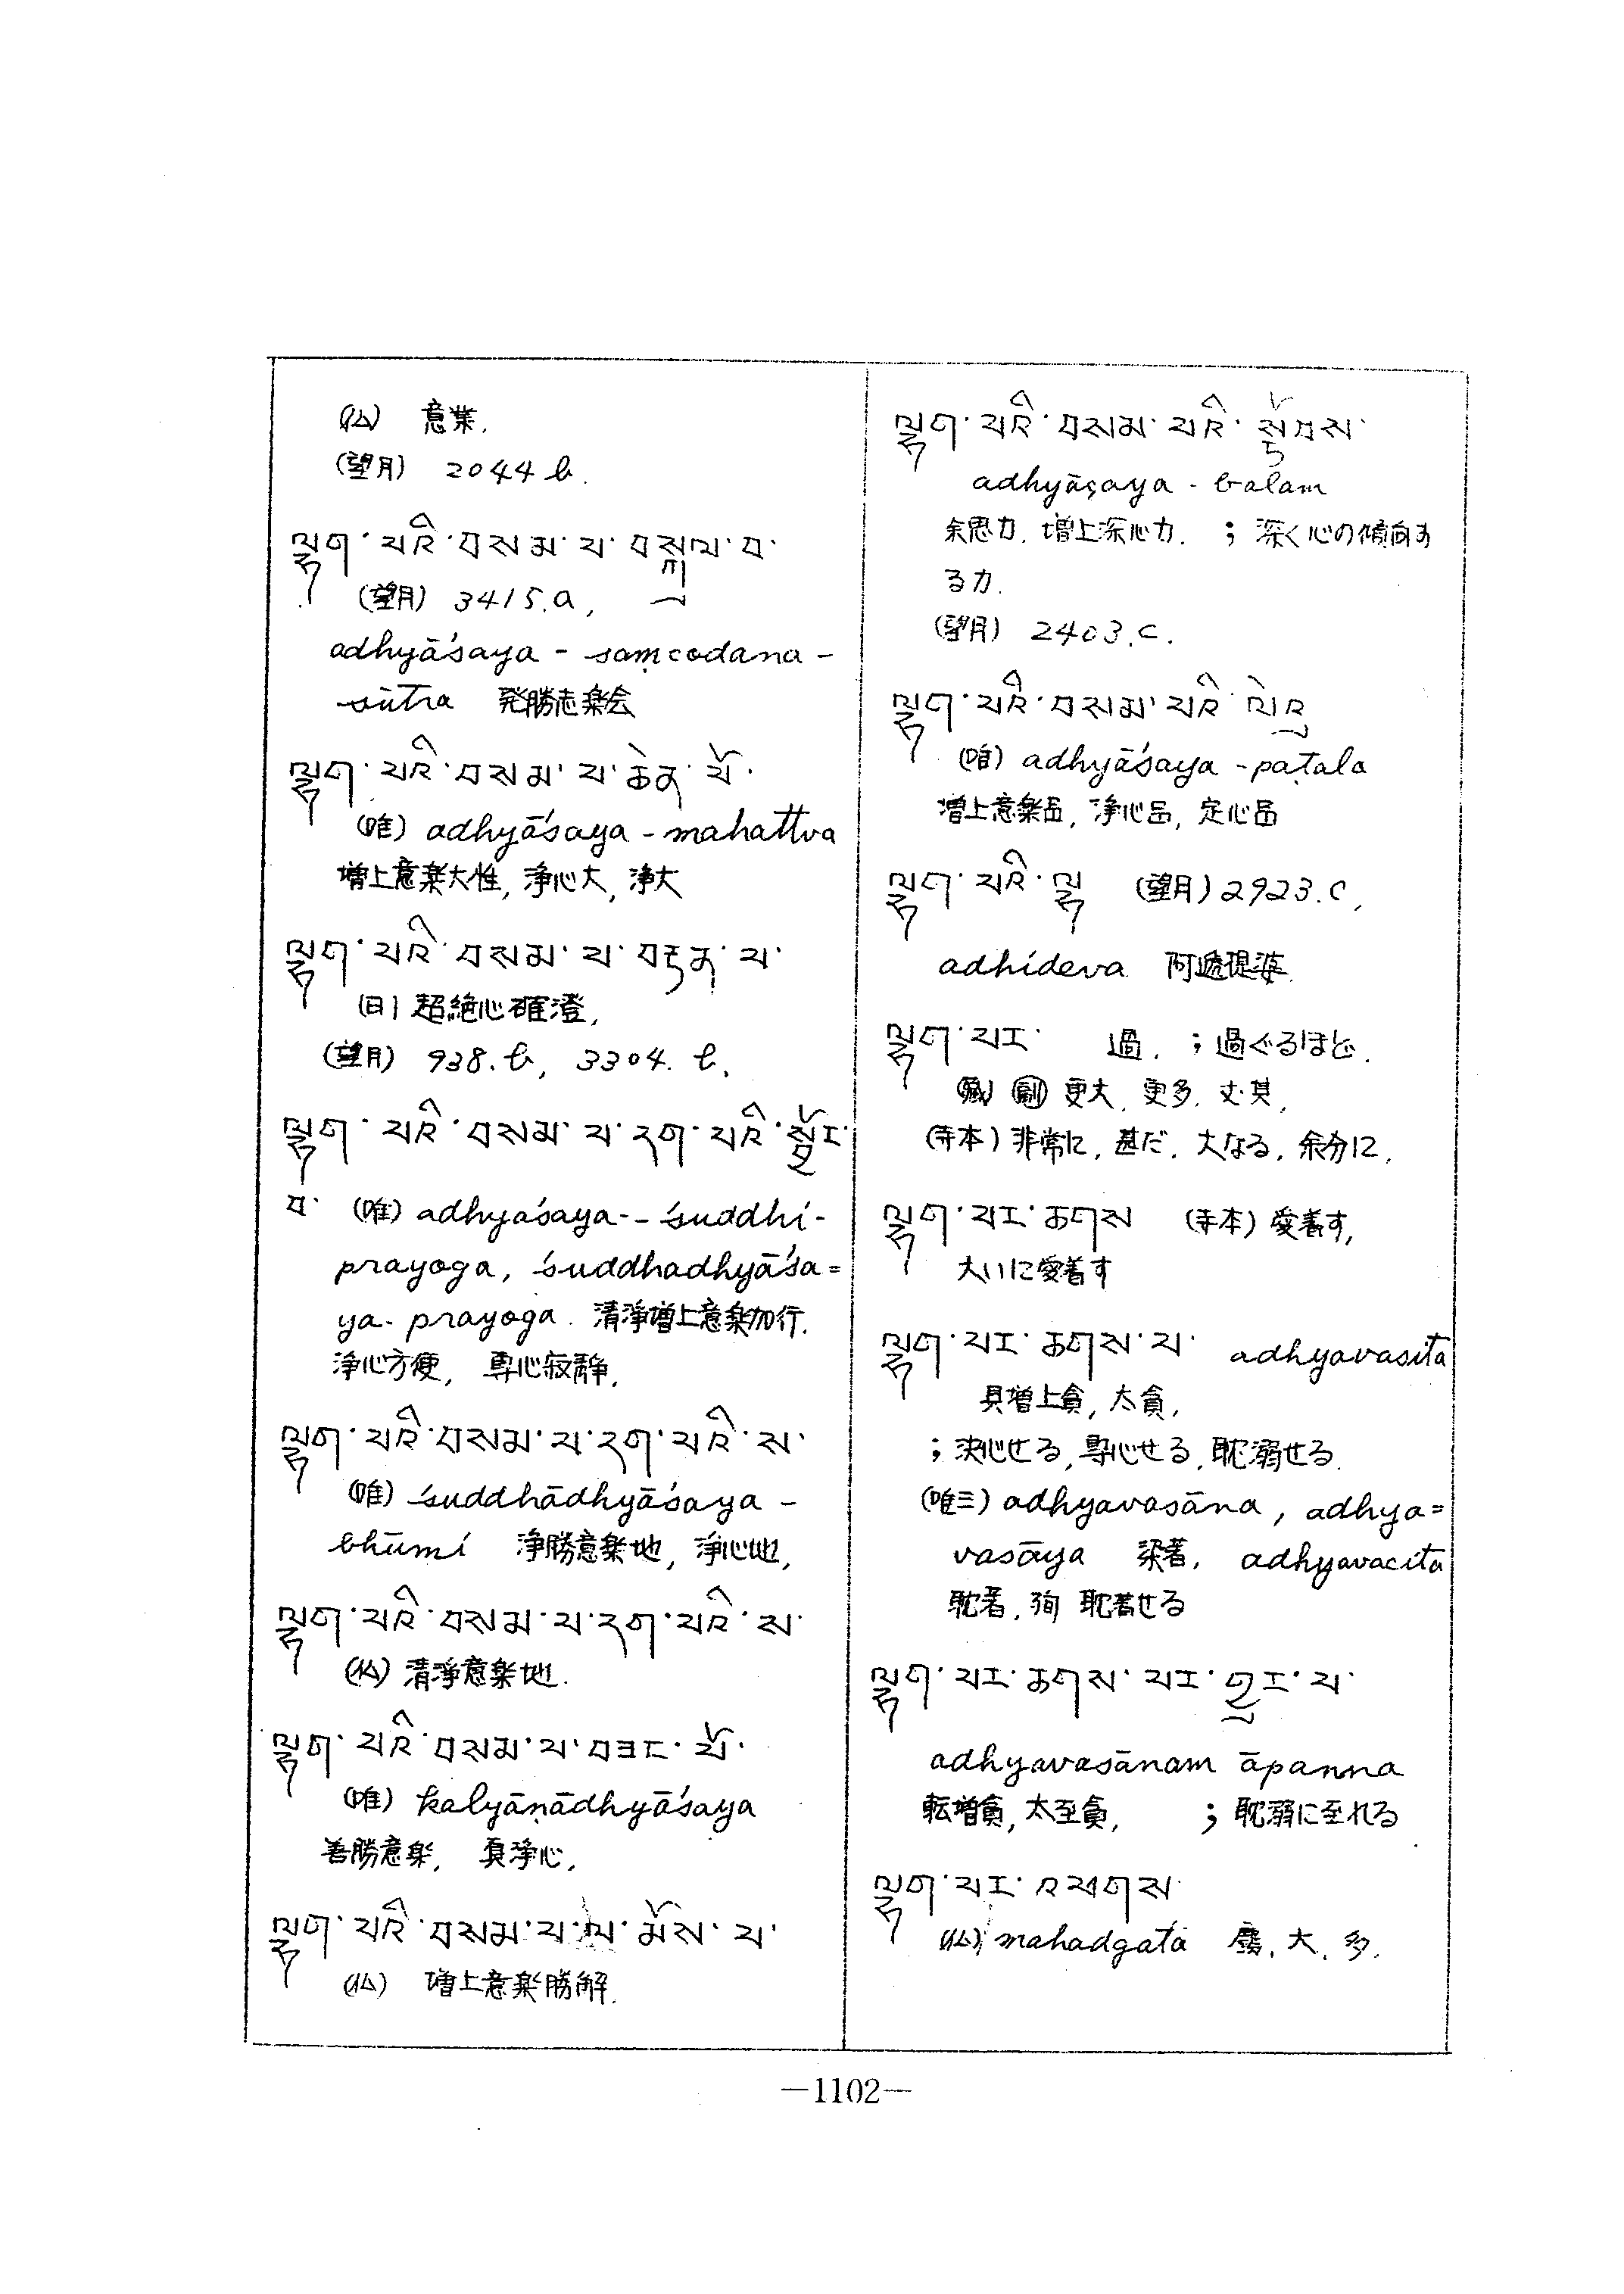 (仏) 意業.
(望月) 2044 b.
ལྷག་པའི་བསམ་པ་བསྐུལ་བ་
(望月) 3415.a,
adhyāśaya - saṃcodana -
sūtra 発勝志楽会
ལྷག་པའི་བསམ་པ་ཆེན་པོ་
(唯) adhyāśaya - mahattva
増上意楽大性, 浄心大, 浄大
ལྷག་པའི་བསམ་པ་བརྟན་པ་
(日) 超絶心確澄,
(望月) 938.b, 3304. b.
ལྷག་པའི་བསམ་པ་དག་པའི་སྦྱོར་
བ་ (唯) adhyaśaya-- śuddhi-
prayoga, śuddhadhyāśa=
ya- prayoga. 清浄増上意楽加行.
浄心方便, 専心寂静.
ལྷག་པའི་བསམ་པ་དག་པའི་ས་
(唯) śuddhādhyāśaya -
bhūmi 浄勝意楽地, 浄心地,
ལྷག་པའི་བསམ་པ་དག་པའི་ས་
(仏) 清浄意楽地.
ལྷག་པའི་བསམ་པ་བཟང་པོ་
(唯) kalyāṇādhyāśaya
善勝意楽, 真浄心,
ལྷག་པའི་བསམ་པ་ལ་མོས་པ་
(仏) 増上意楽勝解.
ལྷག་པའི་བསམ་པའི་སྟོབས་
adhyāçaya - balam
余思力. 増上深心力. ; 深く心の傾向す
る力.
(望月) 2403.c.
ལྷག་པའི་བསམ་པའི་ལེའུ
(唯) adhyāśaya -paṭala
増上意楽品, 浄心品, 定心品
ལྷག་པའི་ལྷ (望月) 2923.c,
adhideva 阿遞提婆.
ལྷག་པར་ 過. ; 過ぐるほど.
蔵 副 更大, 更多. 丈.其,
(寺本) 非常に, 甚だ. 大なる, 余分に.
ལྷག་པར་ཆགས (寺本) 愛着す,
大いに愛着す
ལྷག་པར་ཆགས་པ་ adhyavasita
具増上貪, 太貪,
; 決心せる, 専心せる, 耽溺せる.
(唯三) adhyavasāna, adhya=
vasāya 染著, adhyavacita
耽著, 殉 耽著せる
ལྷག་པར་ཆགས་པར་གྱུར་པ་
adhyavasānam āpanna
転増貪, 太至貪, ; 耽溺に至れる
ལྷག་པར་འཕགས་
(仏) mahadgata 廣, 大, 多.
—1102—